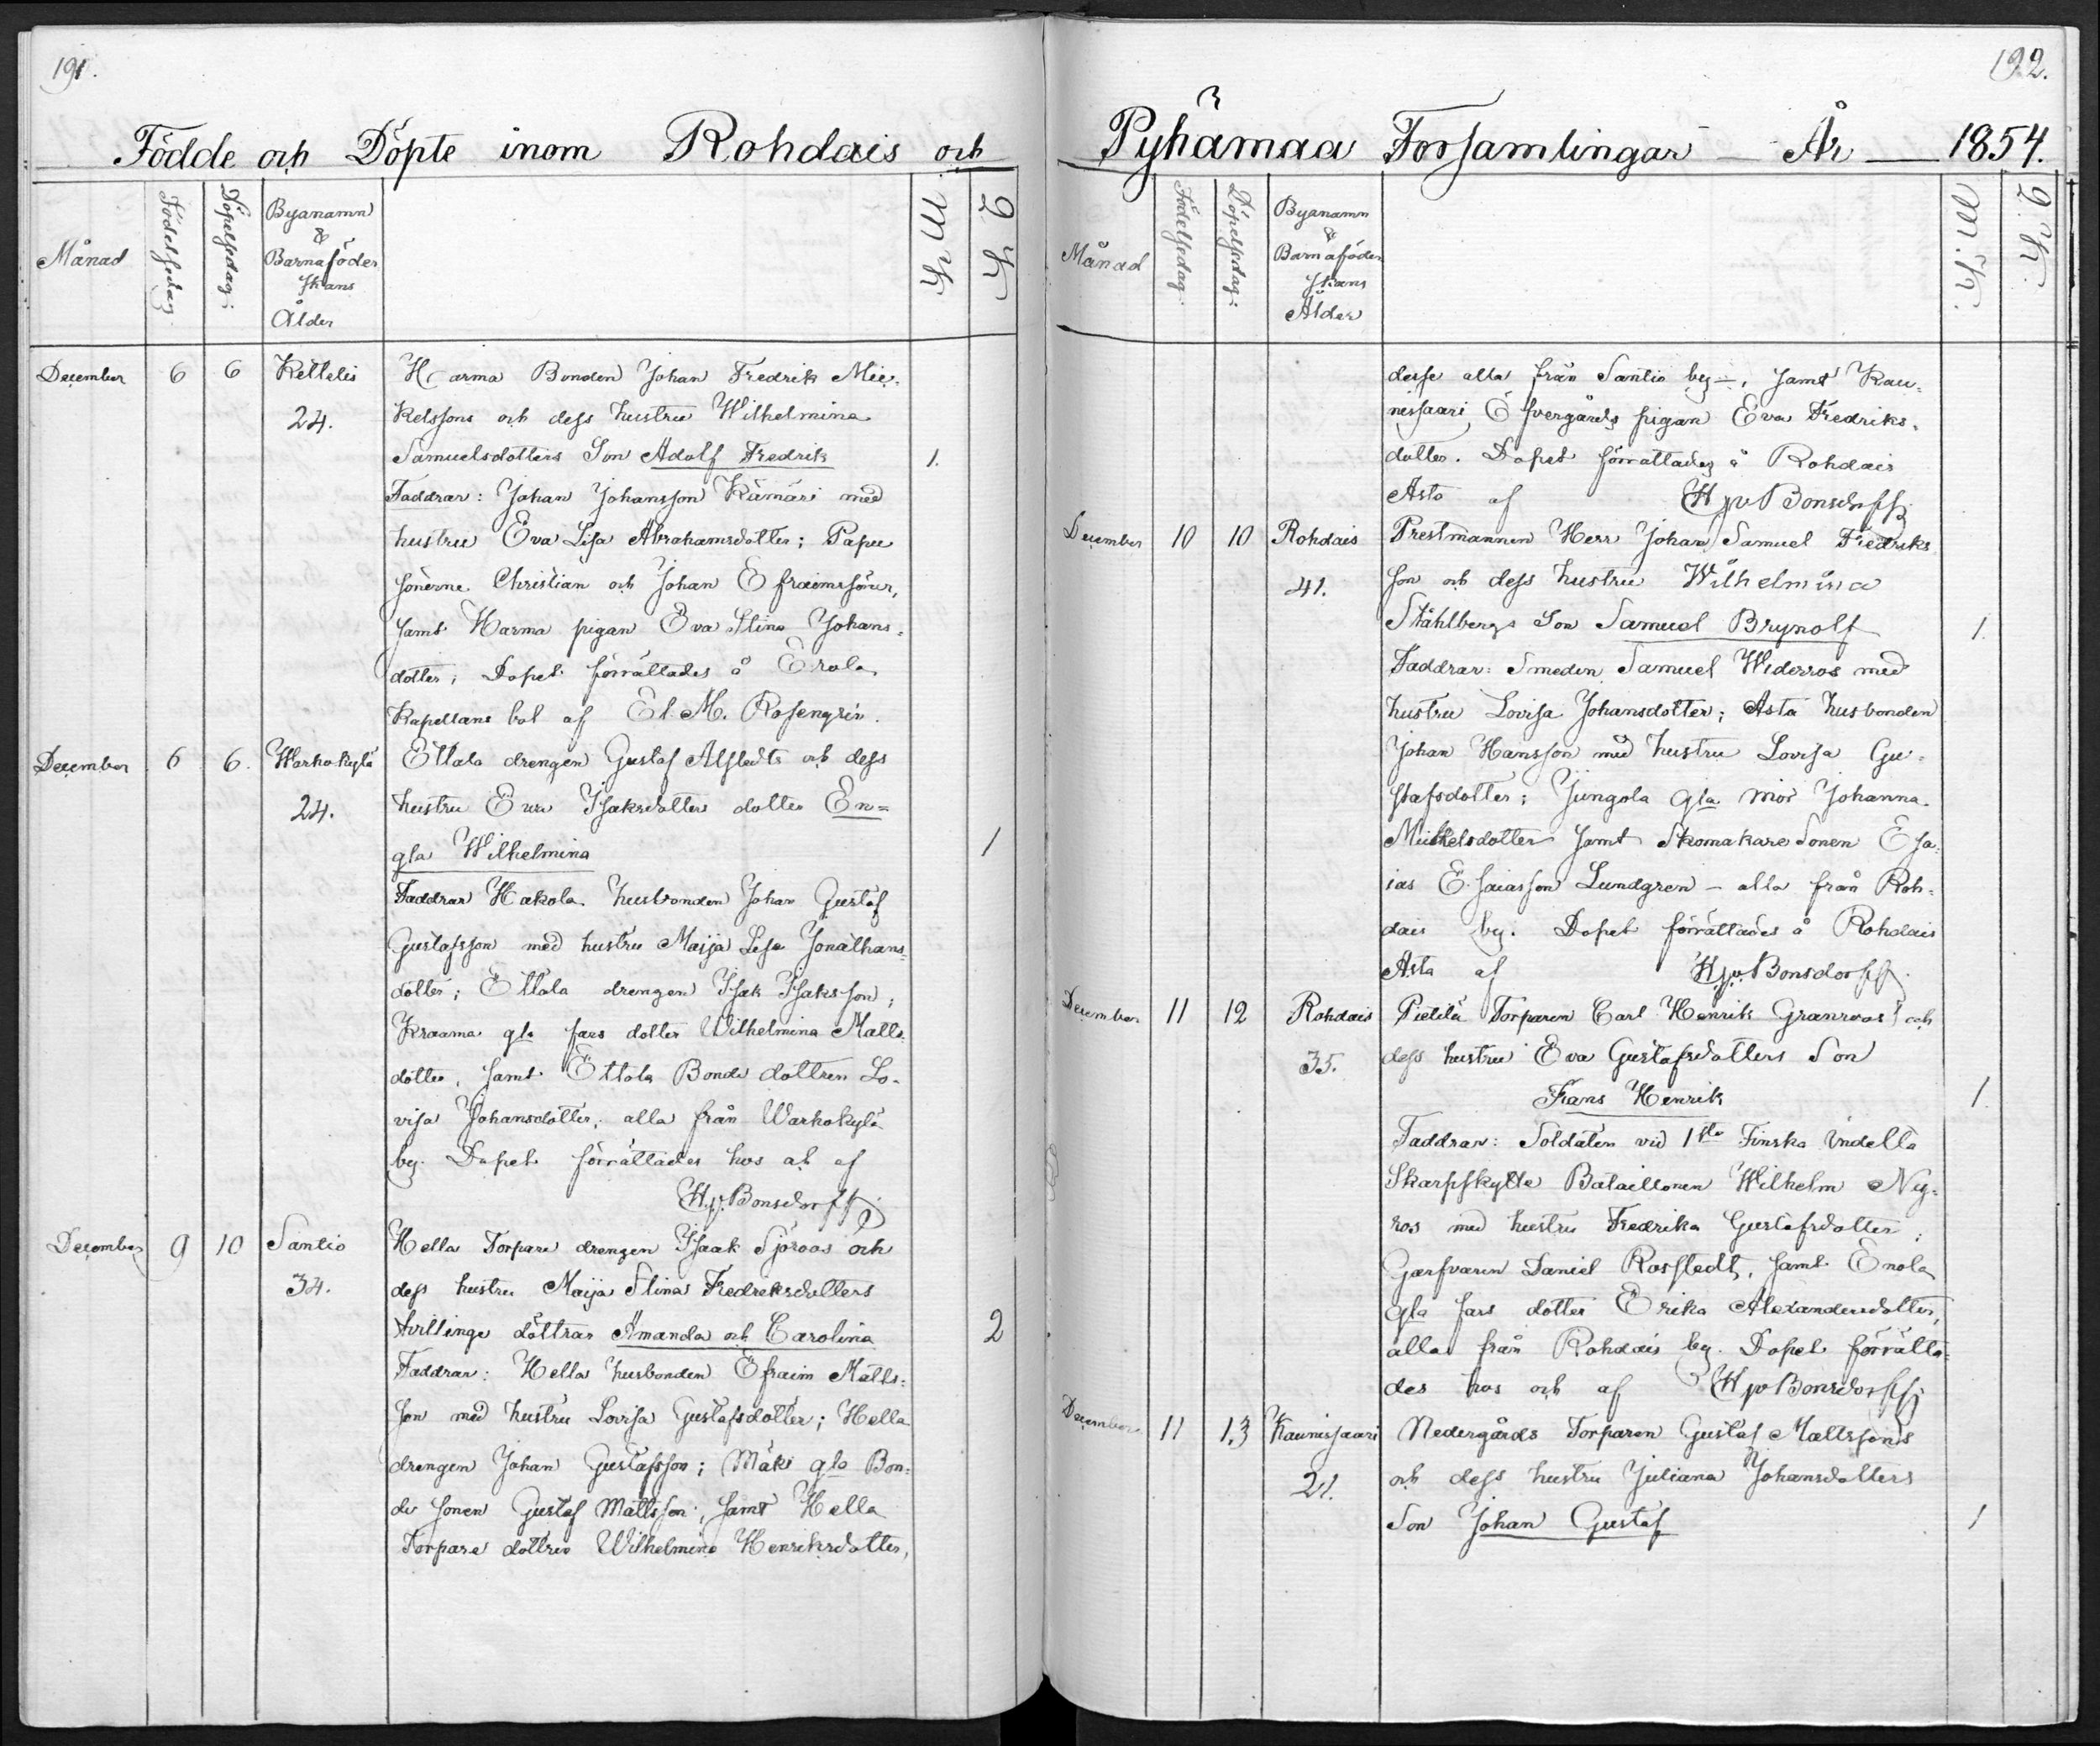 191.
Födde och Döpte inom Rohdais och
Månad
Födelsedag.
Döpelsedag:
Byanamn
&
Barnaföder
skans
Ålder
M. K.
Q. K.
December 6 6 Kettelis Harma Bonden Johan Fredrik Mic-
24. kelssons och dess hustru Wilhelmina
Samuelsdotters Son Adolf Fredrik 1.
Faddrar: Johan Johansson Kämäri med
hustru Eva Lisa Abrahamsdotter; Papu
sönerne Christian och Johan Efraimssöner,
samt Harma pigan Eva Stina Johans-
dotter; Dopet förrättades å Erola
Kapellans bol af El. M. Rosengrén.
December 6 6. Warhokylä Ettala drengen Gustaf Alstedts och dess
24. hustru Eva Isaksdotters dotter En=
gla Wilhelmina 1
Faddrar Hakola husbonden Johan Gustaf
Gustafsson med hustru Maija Lisa Jonathans-
dotter; Ettala drengen Isak Isaksson;
Kraama gla fars dotter Wilhelmina Matts-
dotter, samt Ettala Bonde dottren Lo-
visa Johansdotter, alla från Warhokylä
by. Dopet förrättades hos och af
H. v. Bonsdorff
December 9 10 Santio Hella Torpare drengen Isaak Sjöroos och
34. dess hustru Maija Stina Fredriksdotters
tvillinge döttrar Amanda och Carolina 2
Faddrar: Hella husbonden Efraim Matts-
son med hustru Lovisa Gustafsdotter; Hella
drengen Johan Gustafsson; Mäki gla Bon-
de sonen Gustaf Mattsson; samt Hella
Torpare dottren Wilhelmina Henriksdotter,
192.
Pyhämaa Församlingar – År — 1854.
Månad
Födelsedag.
Döpelsedag:
Byanamn
&
Barnaföder
skans
Ålder
M. K.
Q. K.
desse alla från Santio by –, samt Kau-
nissaari Öfvergårds pigan Eva Fredriks-
dotter. Dopet förrättades å Rohdais
Asta af H v Bonsdorff
December 10 10 Rohdais Prestmannen Herr Johan Samuel Fredriks
41. son och dess hustru Wilhelmina
Ståhlbergs Son Samuel Brynolf 1.
Faddrar: Smeden Samuel Widerros med
hustru Lovisa Johansdotter; Asta husbonden
Johan Hansson med hustru Lovisa Gu-
stafsdotter; Jungola gla mor Johanna
Michelsdotter samt Skomakare Sonen Esa-
ias Esaiasson Lundgren – alla från Roh-
dais by. Dopet förrättades å Rohdais
Asta af H. v. Bonsdorff.
December 11 12 Rohdais Pietilä Torparen Carl Henrik Granroos och
35. dess hustru Eva Gustafsdotters Son
Frans Henrik 1.
Faddrar: Soldaten vid 1sta Finska indelta
Skarpskytte Bataillonen Wilhelm Ny-
ros med hustru Fredrika Gustafsdotter;
Garfvaren Daniel Rosstedt, samt Enola
gla fars dotter Erika Alexandersdotter,
alla från Rohdais by. Dopet förrätta-
des hos och af H v Bonsdorff
December 11 13 Kaunissaari Nedergårds Torparen Gustaf Mattssons
21. och dess hustru Juliana Johansdotters
Son Johan Gustaf 1